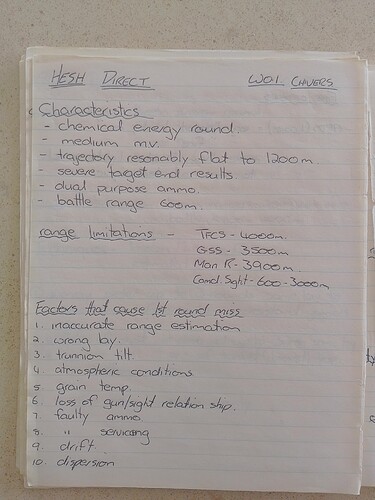 HESH DIRECT WO1 CHIVERS
Characteristics
- chemical energy round.
- medium m.v.
- trajectory resonably flat to 1200m
- severe target end results.
- dual purpose ammo.
- battle range 600m.
range limitations - TFCS - 4000m.
GSS - 3500m
Man R - 3900m
Comd. Sight - 600 - 3000m
Factors that cause 1st round miss
1. inaccurate range estimation
2. wrong lay.
3. trunnion tilt.
4. atmospheric conditions.
5. grain temp.
6. loss of gun/sight relation ship.
7. faulty ammo.
8. " servicing
9. drift.
10. dispersion